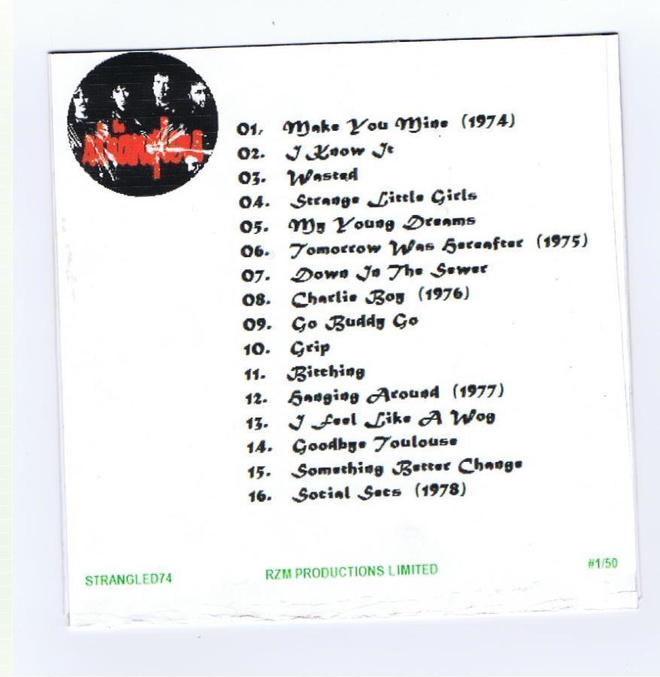 01. Make You Mine (1974)
02. I Know It
03. Wasted
04. Strange Little Girls
05. My Young Dreams
06. Tomorrow Was Hereafter (1975)
07. Down In The Sewer
08. Charlie Boy (1976)
09. Go Buddy Go
10. Grip
11. Bitching
12. Hanging Around (1977)
13. I Feel Like A Wog
14. Goodbye Toulouse
15. Something Better Change
16. Social Secs (1978)
STRANGLED74 RZM PRODUCTIONS LIMITED #1/50